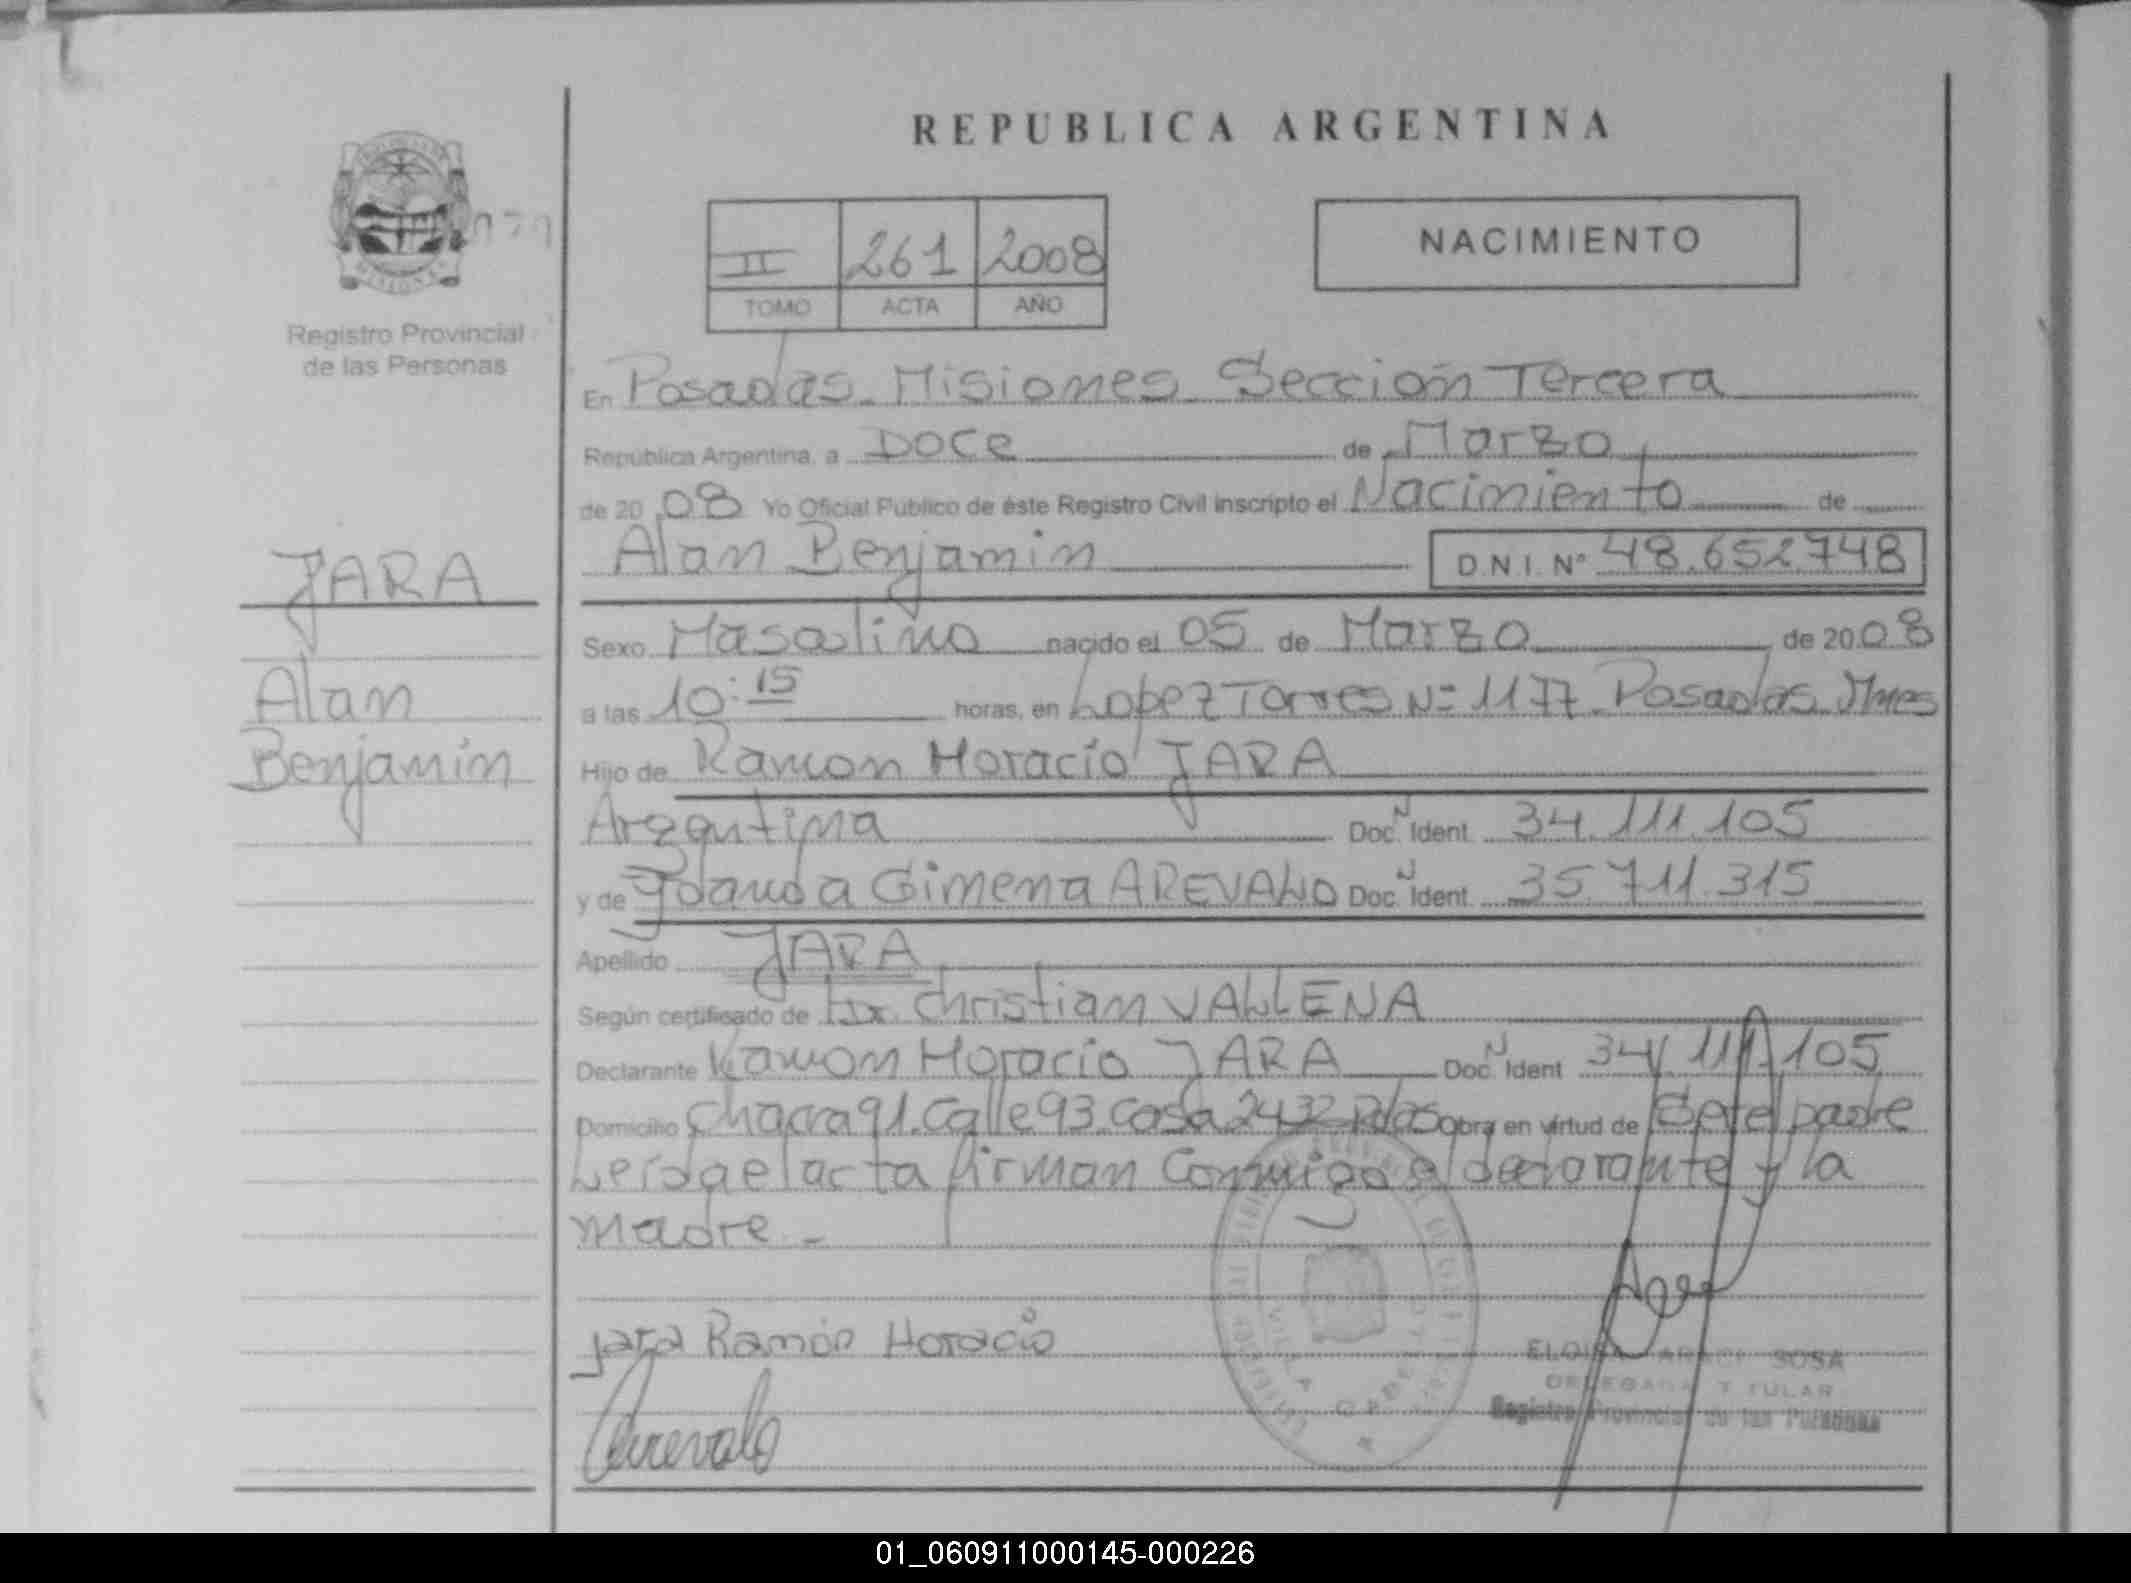 REPUBLICA ARGENTINA
MISIONES
079
Registro Provincial
de las Personas
II 261 2008
TOMO ACTA AÑO
NACIMIENTO
En Posadas Misiones Sección Tercera
República Argentina, a Doce de Marzo
de 2008 Yo Oficial Público de éste Registro Civil inscripto el Nacimiento de
Alan Benjamin D.N.I. Nº 48.652.748
JARA
Alan
Benjamín
Sexo Masculino nacido el 05 de Marzo de 2008
a las 10:15 horas, en Lopez Torres Nº 1177 Posadas Mnes
Hijo de Ramon Horacio JARA
Argentina Doc. N Ident. 34.111.105
y de Yolanda Gimena AREVALO Doc. N Ident. 35.711.315
Apellido JARA
Según certificado de Dr. Christian VALLENA
Declarante Ramon Horacio JARA Doc. N Ident 34.111.105
Domicilio Chacra 91 Calle 93 Casa 2432 Pdas Obra en virtud de Ser el padre
Leída el acta firman Conmigo el declarante y la
madre -
Jara Ramón Horacio
Arevalo
SOSA
DELEGADA TITULAR
Registro Provincial de las Personas
VILLA CABELLO
01_060911000145-000226